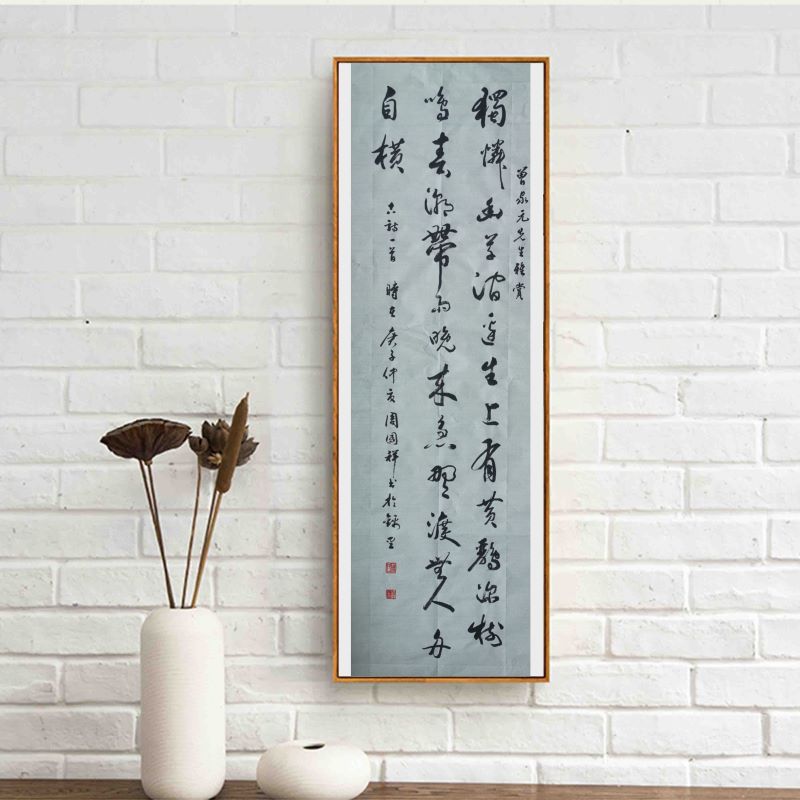 曾泉元先生雅賞
獨憐幽草澗邊生上有黃鸝深樹
鳴春潮帶雨晚來急野渡無人舟
自橫
古詩一首 時在庚子仲夏周國祥書於